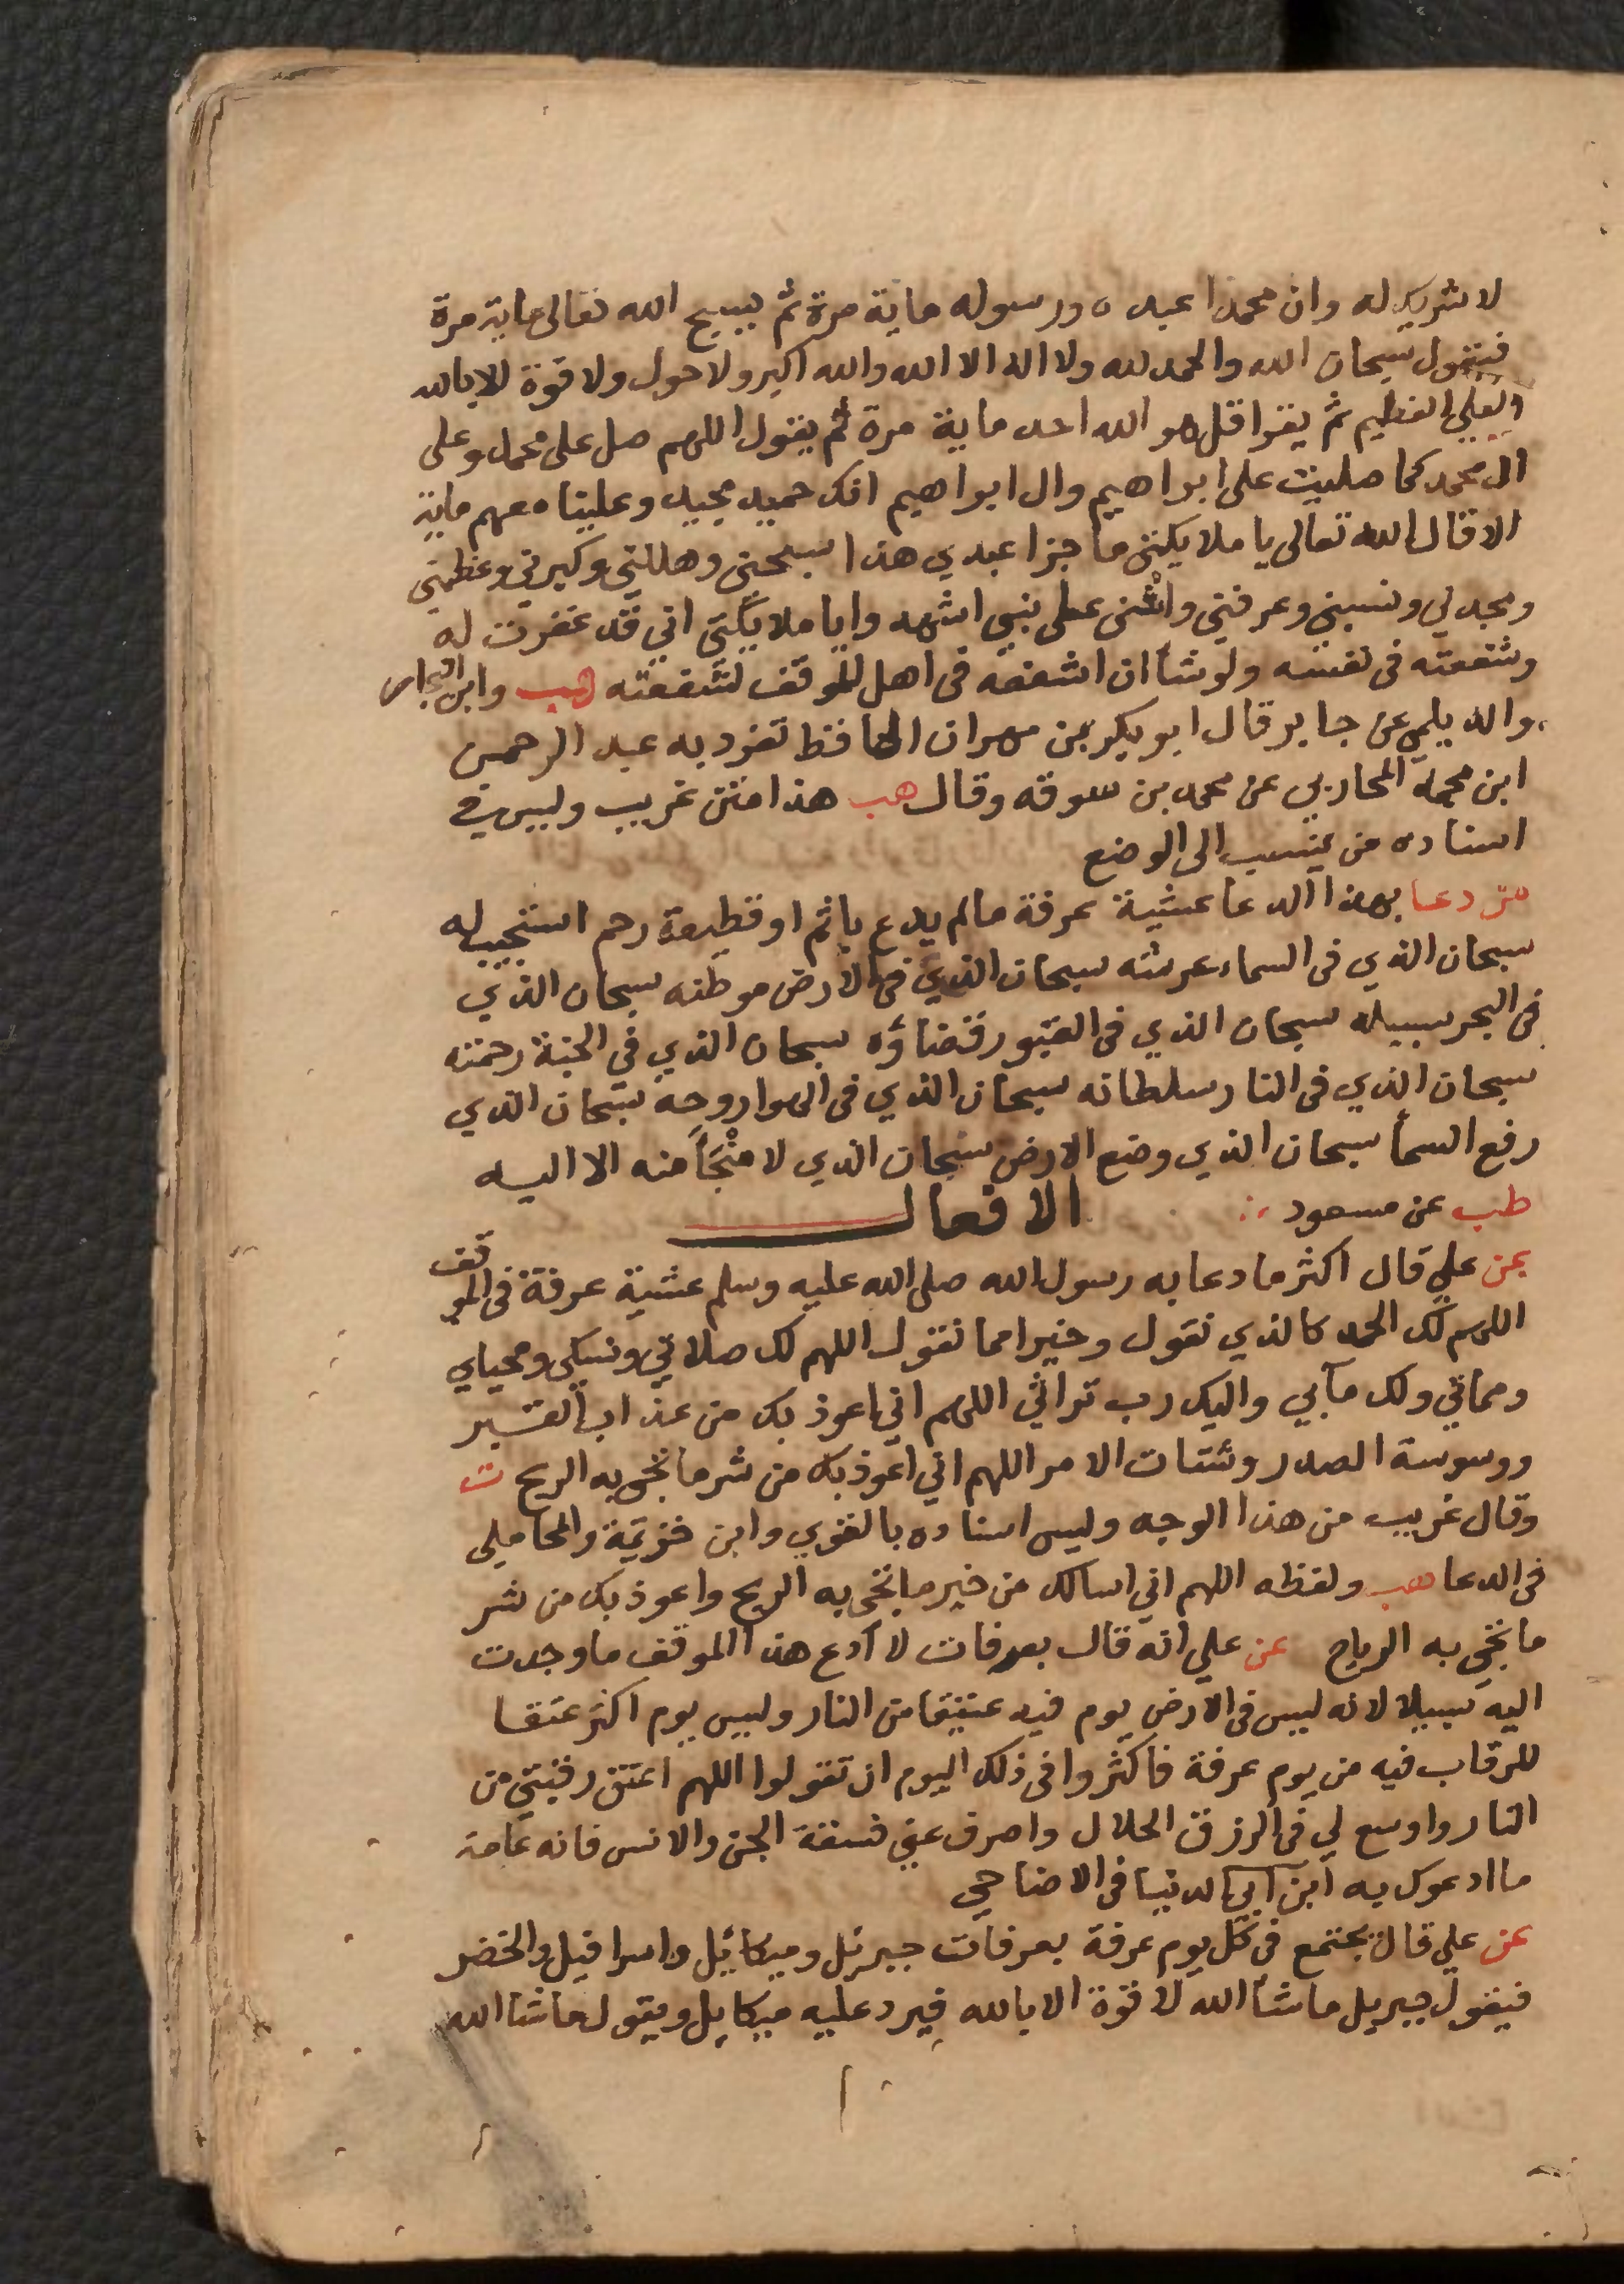 لا شريك له وان محمدا عبده ورسوله ماية مرة ثم يسبح الله تعالى ماية مرة
فيقول سبحان الله والحمد لله ولا اله الا الله والله اكبر ولا حول ولا قوة الا بالله
العلي العظيم ثم يقرا قل هو الله احد ماية مرة ثم يقول اللهم صل على محمد وعلى
ال محمد كما صليت على ابراهيم وال ابراهيم انك حميد مجيد وعلينا معهم ماية
الا قال الله تعالى يا ملايكتي ما جزا عبدي هذا سبحني وهللني وكبرني وعظمني
ومجدني ونسبني وعرفني واثنى على نبيي اشهدوا يا ملايكتي اني قد غفرت له
وشفعته في نفسه ولو شا ان اشفعه في اهل الموقف لشفعته هب وابن النجار
والديلمي عن جابر قال ابو بكر بن مهران الحافظ تفرد به عبد الرحمن
ابن محمد المحاربي عن محمد بن سوقه وقال هب هذا متن غريب وليس في
اسناده من ينسب الى الوضع
من دعا بهذا الدعا عشية عرفة مالم يدع باثم او قطيعة رحم استجيب له
سبحان الذي في السماء عرشه سبحان الذي في الارض موطنه سبحان الذي
في البحر سبيله سبحان الذي في القبور قضاؤه سبحان الذي في الجنة رحمته
سبحان الذي في النار سلطانه سبحان الذي في الهوا روحه سبحان الذي
رفع السما سبحان الذي وضع الارض سبحان الذي لا منجأ منه الا اليه
طب عن مسعود الافعال
عن علي قال اكثر ما دعا به رسول الله صلى الله عليه وسلم عشية عرفة في الموقف
اللهم لك الحمد كالذي نقول وخيرا مما نقول اللهم لك صلاتي ونسكي ومحياي
ومماتي ولك مآبي واليك رب تراثي اللهم اني اعوذ بك من عذاب القبر
ووسوسة الصدر وشتات الامر اللهم اني اعوذ بك من شر ما تجى به الريح ت
وقال غريب من هذا الوجه وليس اسناده بالقوي وابن خزيمة والمحاملي
في الدعا هب ولفظه اللهم اني اسالك من خير ما تجى به الريح واعوذ بك من شر
ما تجي به الرياح عن علي انه قال بعرفات لا ادع هذا الموقف ما وجدت
اليه سبيلا لانه ليس في الارض يوم فيه عتيقا من النار وليس يوم اكثر عتقا
للرقاب فيه من يوم عرفة فاكثروا في ذلك اليوم ان تقولوا اللهم اعتق رقبتي من
النار واوسع لي في الرزق الحلال واصرف عني فسقة الجن والانس فانه عامة
ما ادعوك به ابن ابي الدنيا في الاضاحي
عن علي قال يجتمع في كل يوم عرفة بعرفات جبريل وميكائيل واسرافيل والخضر
فيقول جبريل ما شا الله لا قوة الا بالله فيرد عليه ميكايل ويقول ما شا الله